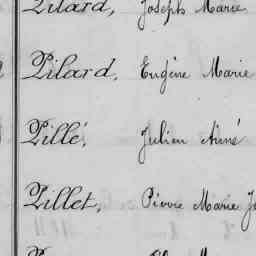 Pilard, Joseph Marie
Pilard, Eugène Marie
Pillé, Julien Aimé
Pillet, Pierre Marie